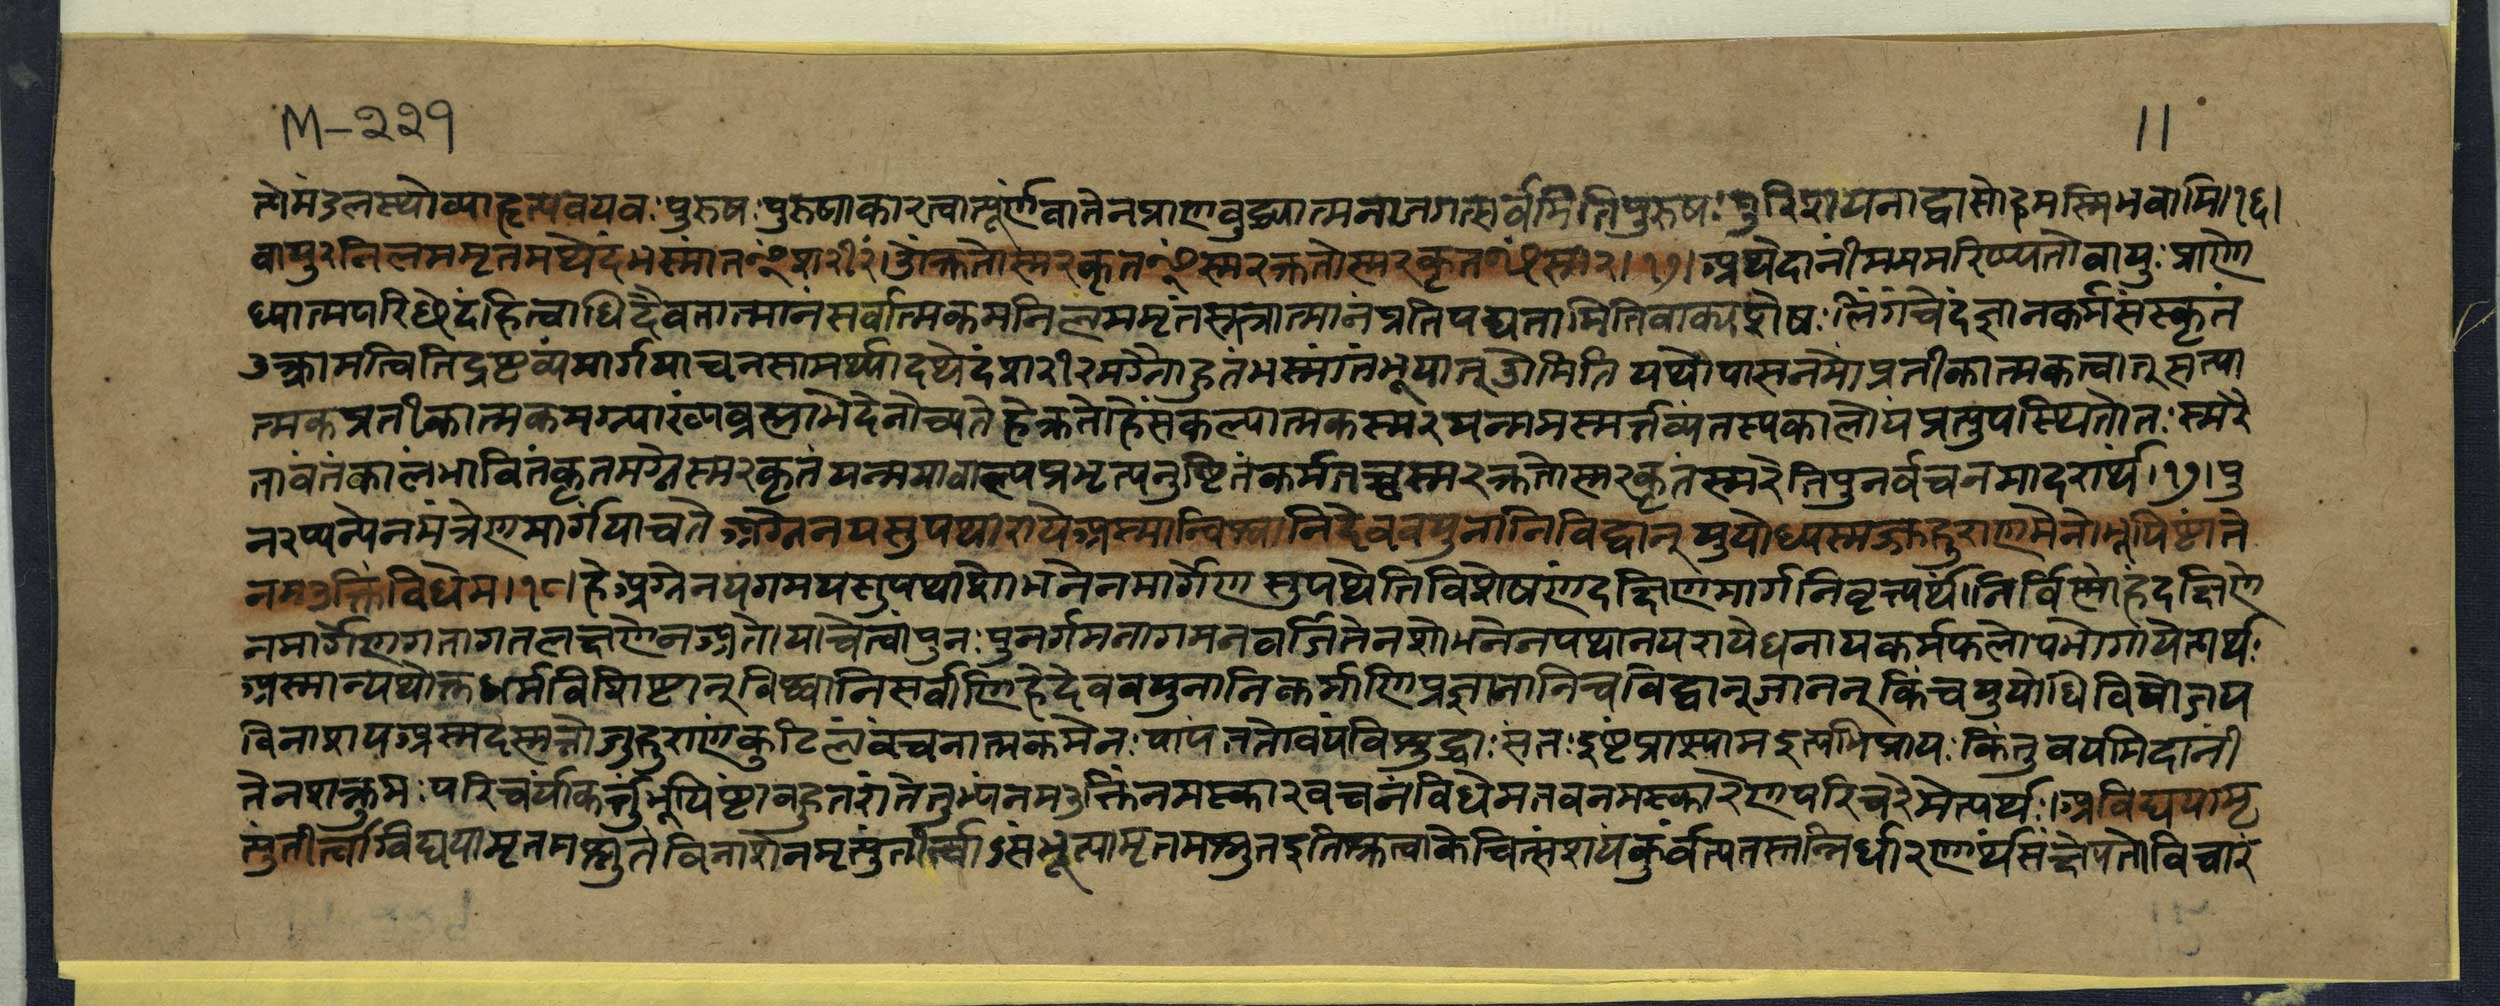 M-२२१
11
त्तोमंडलस्थोव्याहृत्यवयवः पुरुषः पुरुषाकारत्वात्पूर्णंवातेनप्राणबुद्ध्यात्मनाजगत्सर्वमितिपुरुषः पुरिशयनाद्वासोहमस्मिभवामि।१६।
वायुरनिलममृतमथेदंभस्मांतꣳशरीरं।ॐक्रतोस्मरकृतꣳस्मरक्रतोस्मरकृतꣳस्मर।१७।अथेदानींमममरिष्यतोवायुः प्राणो
ध्यात्मपरिछेदंहित्वाधिदैवतात्मानंसर्वात्मकमनिलममृतंसूत्रात्मानंप्रतिपद्यतामितिवाक्यशेषः लिंगंचेदंज्ञानकर्मसंस्कृतं
उत्क्रामत्वितिद्रष्टव्यंमार्गयाचनसामर्थ्यादथेदंशरीरमग्नौहुतंभस्मांतंभूयात् ओमिति यथोपासनमोंप्रतीकात्मकत्वात् सत्या
त्मकप्रतीकात्मकमग्न्याख्यंब्रह्माभेदेनोच्यते हेक्रतोहेसंकल्पात्मकस्मरयन्ममस्मर्त्तव्यंतस्यकालोयंप्रत्युपस्थितोतः स्मरै
तावंतंकालंभावितंकृतमग्नेस्मरकृतं यन्मयाबाल्यप्रभृत्यनुष्ठितंकर्मतच्चस्मरक्रतोस्मरकृतंस्मरेतिपुनर्वचनमादरार्थं।१७।पु
नरप्यन्येनमंत्रेणमार्गंयाचते अग्नेनयसुपथारायेअस्मान्विश्वानिदेववयुनानिविद्वान् युयोध्यस्मज्जुहुराणमेनोभूयिष्ठांते
नमउक्तिंविधेम।१८।हेअग्नेनयगमयसुपथाशोभनेनमार्गेण सुपथेतिविशेषणंदक्षिणमार्गनिवृत्त्यर्थं।निर्विण्णोहंदक्षिणे
नमार्गेणगतागतलक्षणेनअतोयाचेत्वांपुनः पुनर्गमनागमनवर्जितेनशोभनेनपथानयरायेधनायकर्मफलोपभोगायेत्यर्थः
अस्मान्यथोक्तधर्मविशिष्टान् विश्वानिसर्वाणिहेदेववयुनानिकर्माणिप्रज्ञानानिचविद्वान् जानन् किंचयुयोधिवियोजय
विनाशयअस्मदस्मत्तोजुहुराणंकुटिलंवंचनात्मकमेनः पापंततोवयंविशुद्धाः संतः इष्टंप्राप्स्यामइत्यभिप्रायः किंतुवयमिदानीं
तेनशक्नुमः परिचर्यांकर्त्तुंभूयिष्ठांबहुतरांतेतुभ्यंनमउक्तिंनमस्कारवचनंविधेमतवनमस्कारेणपरिचरेमेत्यर्थः।अविद्ययामृ
त्युंतीर्त्वाविद्ययामृतमश्नुते विनाशेनमृत्युंतीर्त्वाऽसंभूत्यामृतमश्नुतइतिश्रुत्वाकेचित्संशयंकुर्वंत्यतस्तन्निर्धारणार्थंसंक्षेपतोविचारं